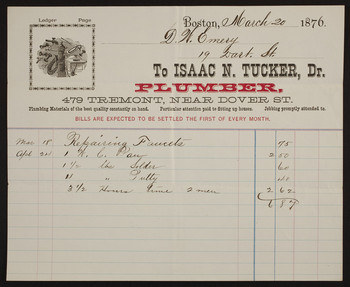 Ledger Page
Boston, March 20 1876.
D. W. Emery
19 East St
To ISAAC N. TUCKER, Dr.
PLUMBER,
479 TREMONT, NEAR DOVER ST.
Plumbing Materials of the best quality constantly on hand. Particular attention paid to fitting up houses. Jobbing promptly attended to.
BILLS ARE EXPECTED TO BE SETTLED THE FIRST OF EVERY MONTH.
Mar 18 Repairing Faucets 75
1 W. C. Pan 2 50
1 1/2 lbs Solder 60
" " Putty
3 1/2 Hours time 2 men 2 62
6 87